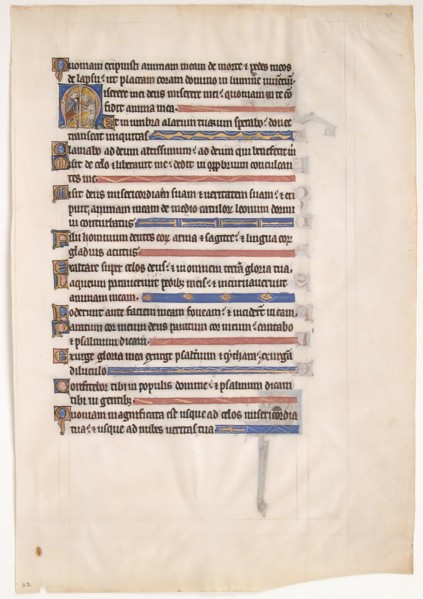 Quoniam eripuisti animam meam de morte & pedes meos
de lapsu: ut placeam coram domino in lumine
iserere mei deus miserere mei: quoniam in te con
fidit anima mea.
Et in umbra alarum tuarum sperabo: donec
transeat iniquitas
Clamabo ad deum altissimum: ad deum qui benefecit m
Misit de celo & liberauit me: dedit in opprobrium conculcan
tes me.
Misit deus misericordiam suam & ueritatem suam: & eri
puit animam meam de medio catulor leonum dormi
ui conturbatus
Filii hominum dentes eor arma & sagitte: & lingua eor
gladius acutus.
Exaltare super celos deus: & in omnem terra gloria tua.
Laqueum parauerunt pedibus meis: & incuruauerunt
animam meam.
Foderunt ante faciem meam foueam: & inciderunt in eam.
Paratum cor meum deus paratum cor meum: cantabo
& psalmum dicam.
Exurge gloria mea exurge psalterium & cythara: exurgam
diluculo
Confitebor tibi in populis domine: & psalmum dicam
tibi in gentibus.
Quoniam magnificata est usque ad celos misericordia
tua: & usque ad nubes ueritas tua